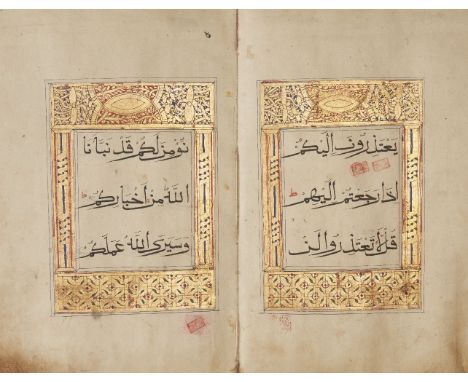 يعتذرون إليكم
إذا رجعتم إليهم
قل لا تعتذروا لن
نؤمن لكم قد نبأنا
الله من أخباركم
وسيرى الله عملكم